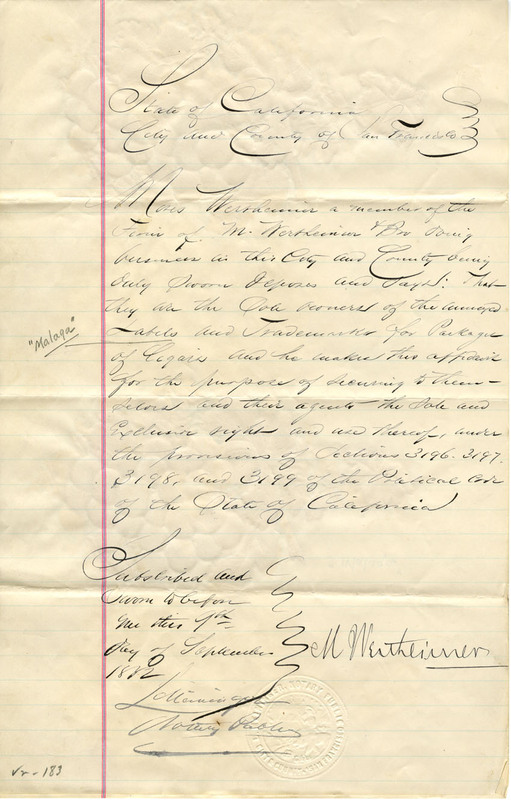 State of California
City and County of San Francisco
Moses Wertheimer a member of the
Firm of M. Wertheimer & Bro doing
business in this City and County being
duly Sworn deposes and Says: That
they are the Sole owners of the annexed
Labels and Trademarks for Packages
of Cigars and he makes this affidavit
for the purpose of securing to them-
selves and their agents the Sole and
Exclusive right and use thereof, under
the provisions of Sections 3196. 3197.
3198, and 3199 of the Political Code
of the State of California
"Malaga"
Subscribed and
Sworn to before
me this
day of September
1882
M Wertheimer
Notary Public
183